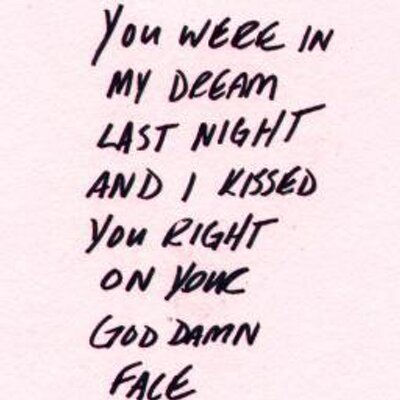 You WERE IN
MY DREAM
LAST NIGHT
AND I KISSED
You RIGHT
ON YOUR
GOD DAMN
FACE